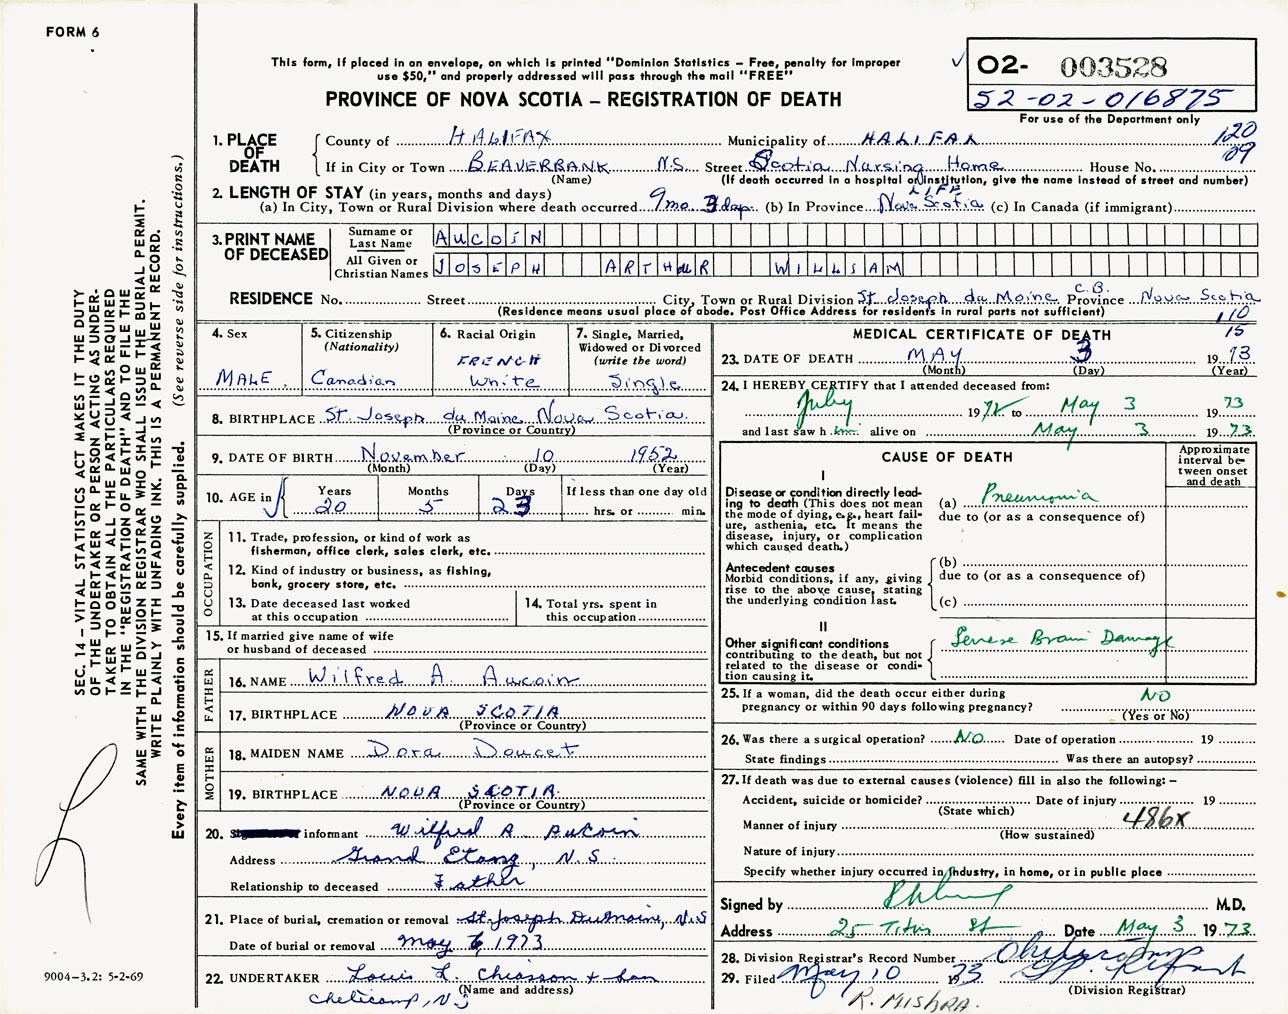 FORM 6
This form, if placed in an envelope, on which is printed "Dominion Statistics – Free, penalty for improper
use $50," and properly addressed will pass through the mail "FREE"
PROVINCE OF NOVA SCOTIA – REGISTRATION OF DEATH
O2- 003528
52-02-016875
For use of the Department only
120
09
1. PLACE OF DEATH
County of HALIFAX Municipality of HALIFAX
If in City or Town BEAVERBANK N.S. Street Scotia Nursing Home House No.
(Name) (If death occurred in a hospital or institution, give the name instead of street and number)
2. LENGTH OF STAY (in years, months and days)
LIFE
(a) In City, Town or Rural Division where death occurred 9 mo. 3 days (b) In Province Nova Scotia (c) In Canada (if immigrant)
3. PRINT NAME OF DECEASED
Surname or Last Name AUCOIN
All Given or Christian Names JOSEPH ARTHUR WILLIAM
C.B.
RESIDENCE No. Street City, Town or Rural Division St Joseph du Moine Province Nova Scotia
(Residence means usual place of abode. Post Office Address for residents in rural parts not sufficient)
110
15
4. Sex
MALE
5. Citizenship
(Nationality)
Canadian
6. Racial Origin
FRENCH
White
7. Single, Married,
Widowed or Divorced
(write the word)
Single
8. BIRTHPLACE St. Joseph du Moine Nova Scotia.
(Province or Country)
9. DATE OF BIRTH November 10 1952
(Month) (Day) (Year)
10. AGE in
Years Months Days If less than one day old
20 5 23 hrs. or min.
OCCUPATION
11. Trade, profession, or kind of work as
fisherman, office clerk, sales clerk, etc.
12. Kind of industry or business, as fishing,
bank, grocery store, etc.
13. Date deceased last worked
at this occupation
14. Total yrs. spent in
this occupation
15. If married give name of wife
or husband of deceased
FATHER
16. NAME Wilfred A. Aucoin
17. BIRTHPLACE NOVA SCOTIA
(Province or Country)
MOTHER
18. MAIDEN NAME Dora Doucet
19. BIRTHPLACE NOVA SCOTIA
(Province or Country)
20. informant Wilfred A. Aucoin
Address Grand Etang, N.S.
Relationship to deceased Father
21. Place of burial, cremation or removal St. Joseph DuMoine, N.S
Date of burial or removal May 6, 1973
22. UNDERTAKER Louis L. Chiasson + Son
(Name and address)
Cheticamp, N.S
MEDICAL CERTIFICATE OF DEATH
23. DATE OF DEATH MAY 3 19 73
(Month) (Day) (Year)
24. I HEREBY CERTIFY that I attended deceased from:
July 19 72 to May 3 19 73
and last saw h im alive on May 3 19 73
CAUSE OF DEATH
Approximate
interval be-
tween onset
and death
I
Disease or condition directly lead-
ing to death (This does not mean
the mode of dying, e.g., heart fail-
ure, asthenia, etc. It means the
disease, injury, or complication
which caused death.)
(a) Pneumonia
due to (or as a consequence of)
Antecedent causes
Morbid conditions, if any, giving
rise to the above cause, stating
the underlying condition last.
(b)
due to (or as a consequence of)
(c)
II
Other significant conditions
contributing to the death, but not
related to the disease or condi-
tion causing it.
Severe Brain Damage
25. If a woman, did the death occur either during
pregnancy or within 90 days following pregnancy? NO
(Yes or No)
26. Was there a surgical operation? NO Date of operation 19
State findings Was there an autopsy?
27. If death was due to external causes (violence) fill in also the following: –
Accident, suicide or homicide? Date of injury 19
(State which)
486x
Manner of injury
(How sustained)
Nature of injury
Specify whether injury occurred in industry, in home, or in public place
Signed by M.D.
Address 25 Titus St Date May 3 19 73
28. Division Registrar's Record Number
29. Filed May 10 19 73
(Division Registrar)
R. MISHRA.
SEC. 14 – VITAL STATISTICS ACT MAKES IT THE DUTY
OF THE UNDERTAKER OR PERSON ACTING AS UNDER-
TAKER TO OBTAIN ALL THE PARTICULARS REQUIRED
IN THE "REGISTRATION OF DEATH" AND TO FILE THE
SAME WITH THE DIVISION REGISTRAR WHO SHALL ISSUE THE BURIAL PERMIT.
WRITE PLAINLY WITH UNFADING INK. THIS IS A PERMANENT RECORD.
Every item of information should be carefully supplied. (See reverse side for instructions.)
9004-3.2: 5-2-69